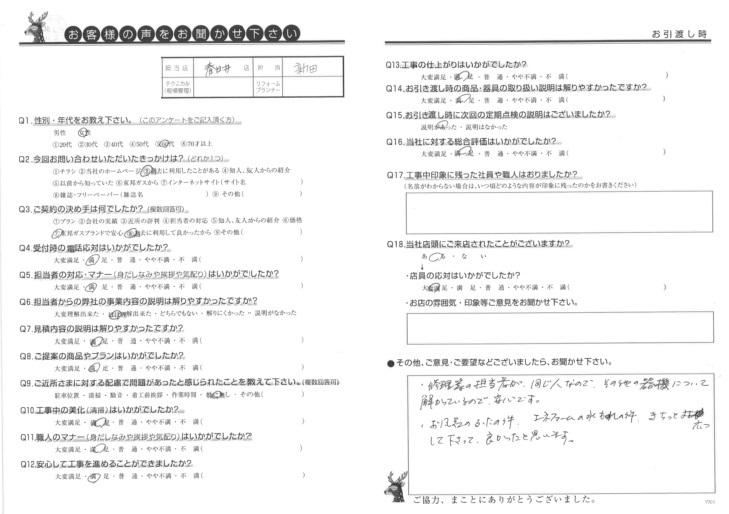 お客様の声をお聞かせ下さい
担当店 春日井 店 担当 新田
テクニカル(現場管理) リフォームプランナー
Q1.性別・年代をお教え下さい。(このアンケートをご記入頂く方)
男性 女性
①20代 ②30代 ③40代 ④50代 ⑤60代 ⑥70才以上
Q2.今回お問い合わせいただいたきっかけは?(どれか1つ)
①チラシ ②当社のホームページ ③過去に利用したことがある ④知人、友人からの紹介
⑤以前から知っていた ⑥東邦ガスから ⑦インターネットサイト(サイト名 )
⑧雑誌・フリーペーパー(雑誌名 ) ⑨その他( )
Q3.ご契約の決め手は何でしたか?(複数回答可)
①プラン ②会社の実績 ③近所の評判 ④担当者の対応 ⑤知人、友人からの紹介 ⑥価格
⑦東邦ガスブランドで安心 ⑧過去に利用して良かったから ⑨その他( )
Q4.受付時の電話応対はいかがでしたか?
大変満足・満足・普通・やや不満・不満( )
Q5.担当者の対応・マナー(身だしなみや挨拶や気配り)はいかがでしたか?
大変満足・満足・普通・やや不満・不満( )
Q6.担当者からの弊社の事業内容の説明は解りやすかったですか?
大変理解出来た・ほぼ理解出来た・どちらでもない・解りにくかった・説明がなかった
Q7.見積内容の説明は解りやすかったですか?
大変満足・満足・普通・やや不満・不満( )
Q8.ご提案の商品やプランはいかがでしたか?
大変満足・満足・普通・やや不満・不満( )
Q9.ご近所さまに対する配慮で問題があったと感じられたことを教えて下さい。(複数回答可)
駐車位置・清掃・騒音・着工前挨拶・作業時間・特に無し・その他( )
Q10.工事中の美化(清掃)はいかがでしたか?
大変満足・満足・普通・やや不満・不満( )
Q11.職人のマナー(身だしなみや挨拶や気配り)はいかがでしたか?
大変満足・満足・普通・やや不満・不満( )
Q12.安心して工事を進めることができましたか?
大変満足・満足・普通・やや不満・不満( )
お引渡し時
Q13.工事の仕上がりはいかがでしたか?
大変満足・満足・普通・やや不満・不満( )
Q14.お引き渡し時の商品・器具の取り扱い説明は解りやすかったですか?
大変満足・満足・普通・やや不満・不満( )
Q15.お引き渡し時に次回の定期点検の説明はございましたか?
説明があった・説明はなかった
Q16.当社に対する総合評価はいかがでしたか?
大変満足・満足・普通・やや不満・不満( )
Q17.工事中印象に残った社員や職人はおりましたか?
(名前がわからない場合は、いつ頃どのような内容が印象に残ったのかをお書きください)
Q18.当社店頭にご来店されたことがございますか?
ある・ない
↓
・店員の応対はいかがでしたか?
大変満足・満足・普通・やや不満・不満( )
・お店の雰囲気・印象等ご意見をお聞かせ下さい。
●その他、ご意見・ご要望などございましたら、お聞かせ下さい。
・修理等の担当者が、同じ人なので、その他の器機について
解かっているので、安心です。
・お風呂のふたの件、エネファームの水もれの件、きちっと対応
して下さって、良かったと思います。
ご協力、まことにありがとうございました。